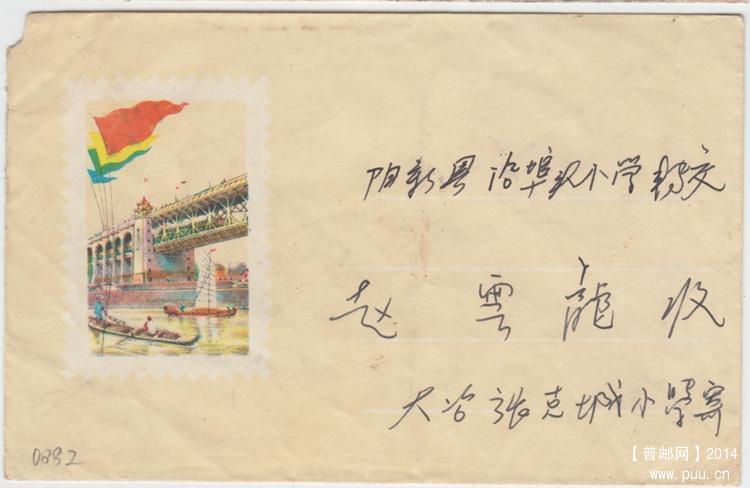 阳新县沿埠头小学转交
赵雲龍收
大冶张克城小學寄
0882
【普邮网】2014
www.puu.cn